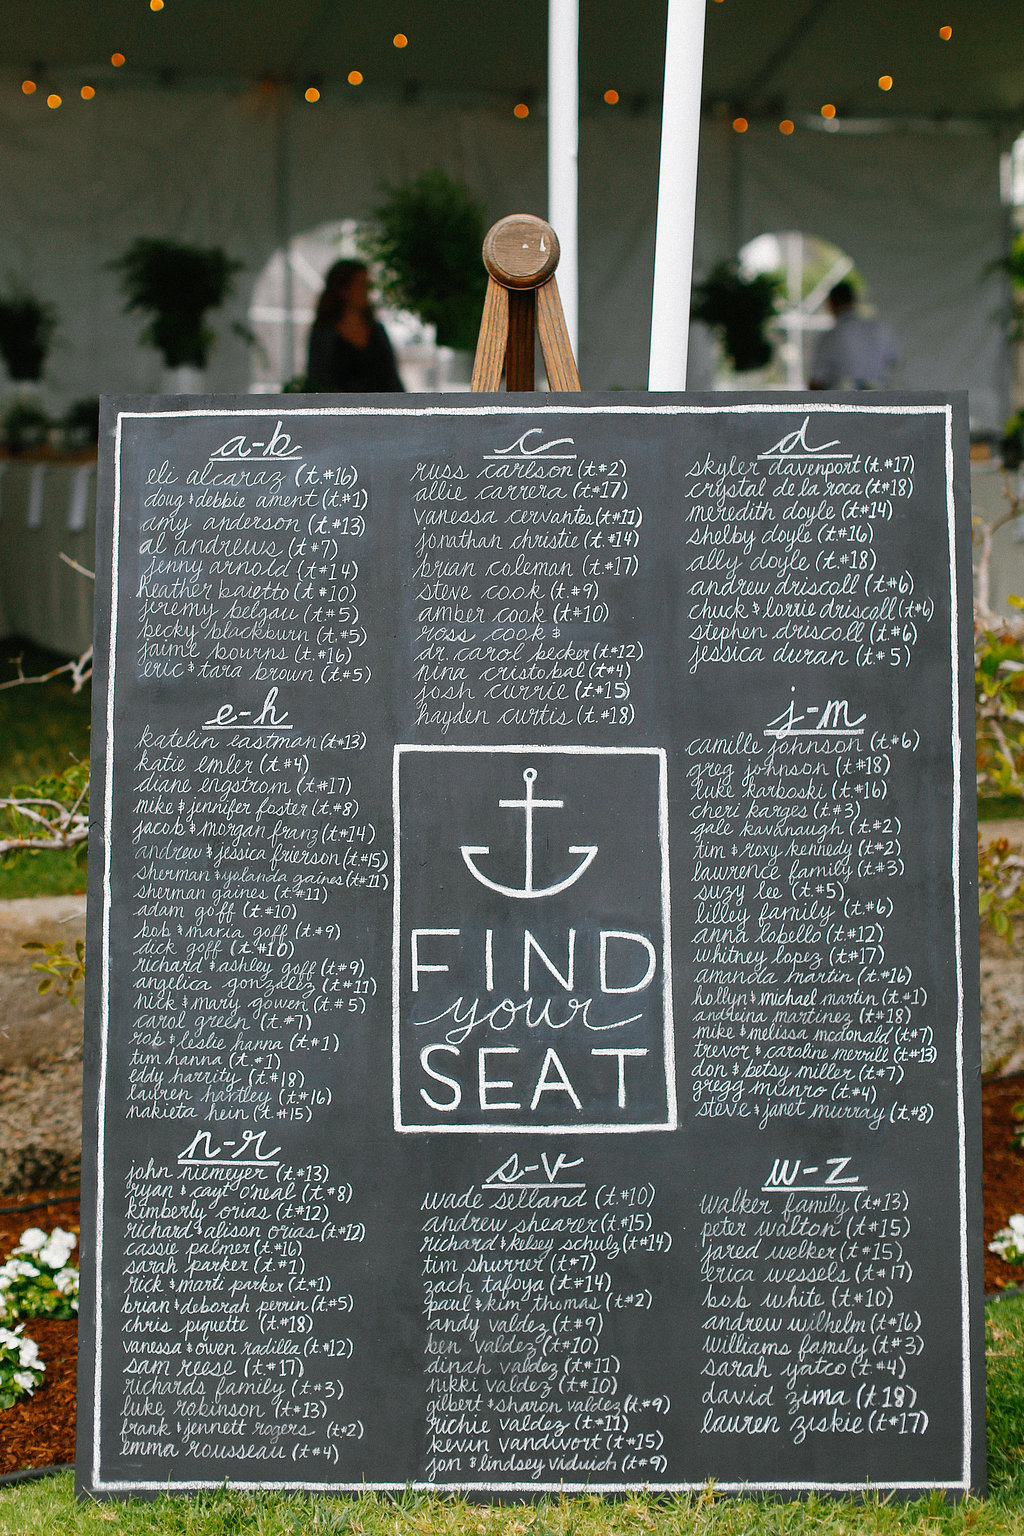 a-b
eli alcaraz (t.#16)
doug & debbie ament (t.#1)
amy anderson (t.#13)
al andrews (t.#7)
jenny arnold (t.#14)
heather baietto (t.#10)
jeremy belgau (t.#5)
becky blackburn (t.#5)
jaime bourns (t.#16)
eric & tara brown (t.#5)
c
russ carlson (t.#2)
allie carrera (t.#17)
vanessa cervantes (t.#11)
jonathan christie (t.#14)
brian coleman (t.#17)
steve cook (t.#9)
amber cook (t.#10)
ross cook &
dr. carol becker (t.#12)
nina cristobal (t.#4)
josh currie (t.#15)
hayden curtis (t.#18)
d
skyler davenport (t.#17)
crystal de la roca (t.#18)
meredith doyle (t.#14)
shelby doyle (t.#16)
ally doyle (t.#18)
andrew driscoll (t.#6)
chuck & lorrie driscoll (t.#6)
stephen driscoll (t.#6)
jessica duran (t.#5)
e-h
katelin eastman (t.#13)
katie emler (t.#4)
diane engstrom (t.#17)
mike & jennifer foster (t.#8)
jacob & morgan franz (t.#14)
andrew & jessica frierson (t.#15)
sherman & yolanda gaines (t.#11)
sherman gaines (t.#11)
adam goff (t.#10)
bob & maria goff (t.#9)
dick goff (t.#10)
richard & ashley goff (t.#9)
angelica gonzalez (t.#11)
nick & mary gowen (t.#5)
carol green (t.#7)
rob & leslie hanna (t.#1)
tim hanna (t.#1)
eddy harrity (t.#18)
lauren hartley (t.#16)
nakieta hein (t.#15)
FIND
your
SEAT
j-m
camille johnson (t.#6)
greg johnson (t.#18)
luke karboski (t.#16)
cheri karges (t.#3)
gale kavanaugh (t.#2)
tim & roxy kennedy (t.#2)
lawrence family (t.#3)
suzy lee (t.#5)
lilley family (t.#6)
anna lobello (t.#12)
whitney lopez (t.#17)
amanda martin (t.#16)
hollyn & michael martin (t.#1)
andreina martinez (t.#18)
mike & melissa mcdonald (t.#7)
trevor & caroline merrill (t.#13)
don & betsy miller (t.#7)
gregg munro (t.#4)
steve & janet murray (t.#8)
n-r
john niemeyer (t.#13)
ryan & cayt o'neal (t.#8)
kimberly orias (t.#12)
richard & alison orias (t.#12)
cassie palmer (t.#16)
sarah parker (t.#1)
rick & marti parker (t.#1)
brian & deborah perrin (t.#5)
chris piquette (t.#18)
vanessa & owen radilla (t.#12)
sam reese (t.#17)
richards family (t.#3)
luke robinson (t.#13)
frank & jennett rogers (t.#2)
emma rousseau (t.#4)
s-v
wade selland (t.#10)
andrew shearer (t.#15)
richard & kelsey schulz (t.#14)
tim shurrer (t.#7)
zach tafoya (t.#14)
paul & kim thomas (t.#2)
andy valdez (t.#9)
ben valdez (t.#10)
dinah valdez (t.#11)
nikki valdez (t.#10)
gilbert & sharon valdez (t.#9)
richie valdez (t.#11)
kevin vandivort (t.#15)
jon & lindsey viduich (t.#9)
w-z
walker family (t.#13)
peter walton (t.#15)
jared welker (t.#15)
erica wessels (t.#17)
bob white (t.#10)
andrew wilhelm (t.#16)
williams family (t.#3)
sarah yatco (t.#4)
david zima (t.18)
lauren ziskie (t.#17)